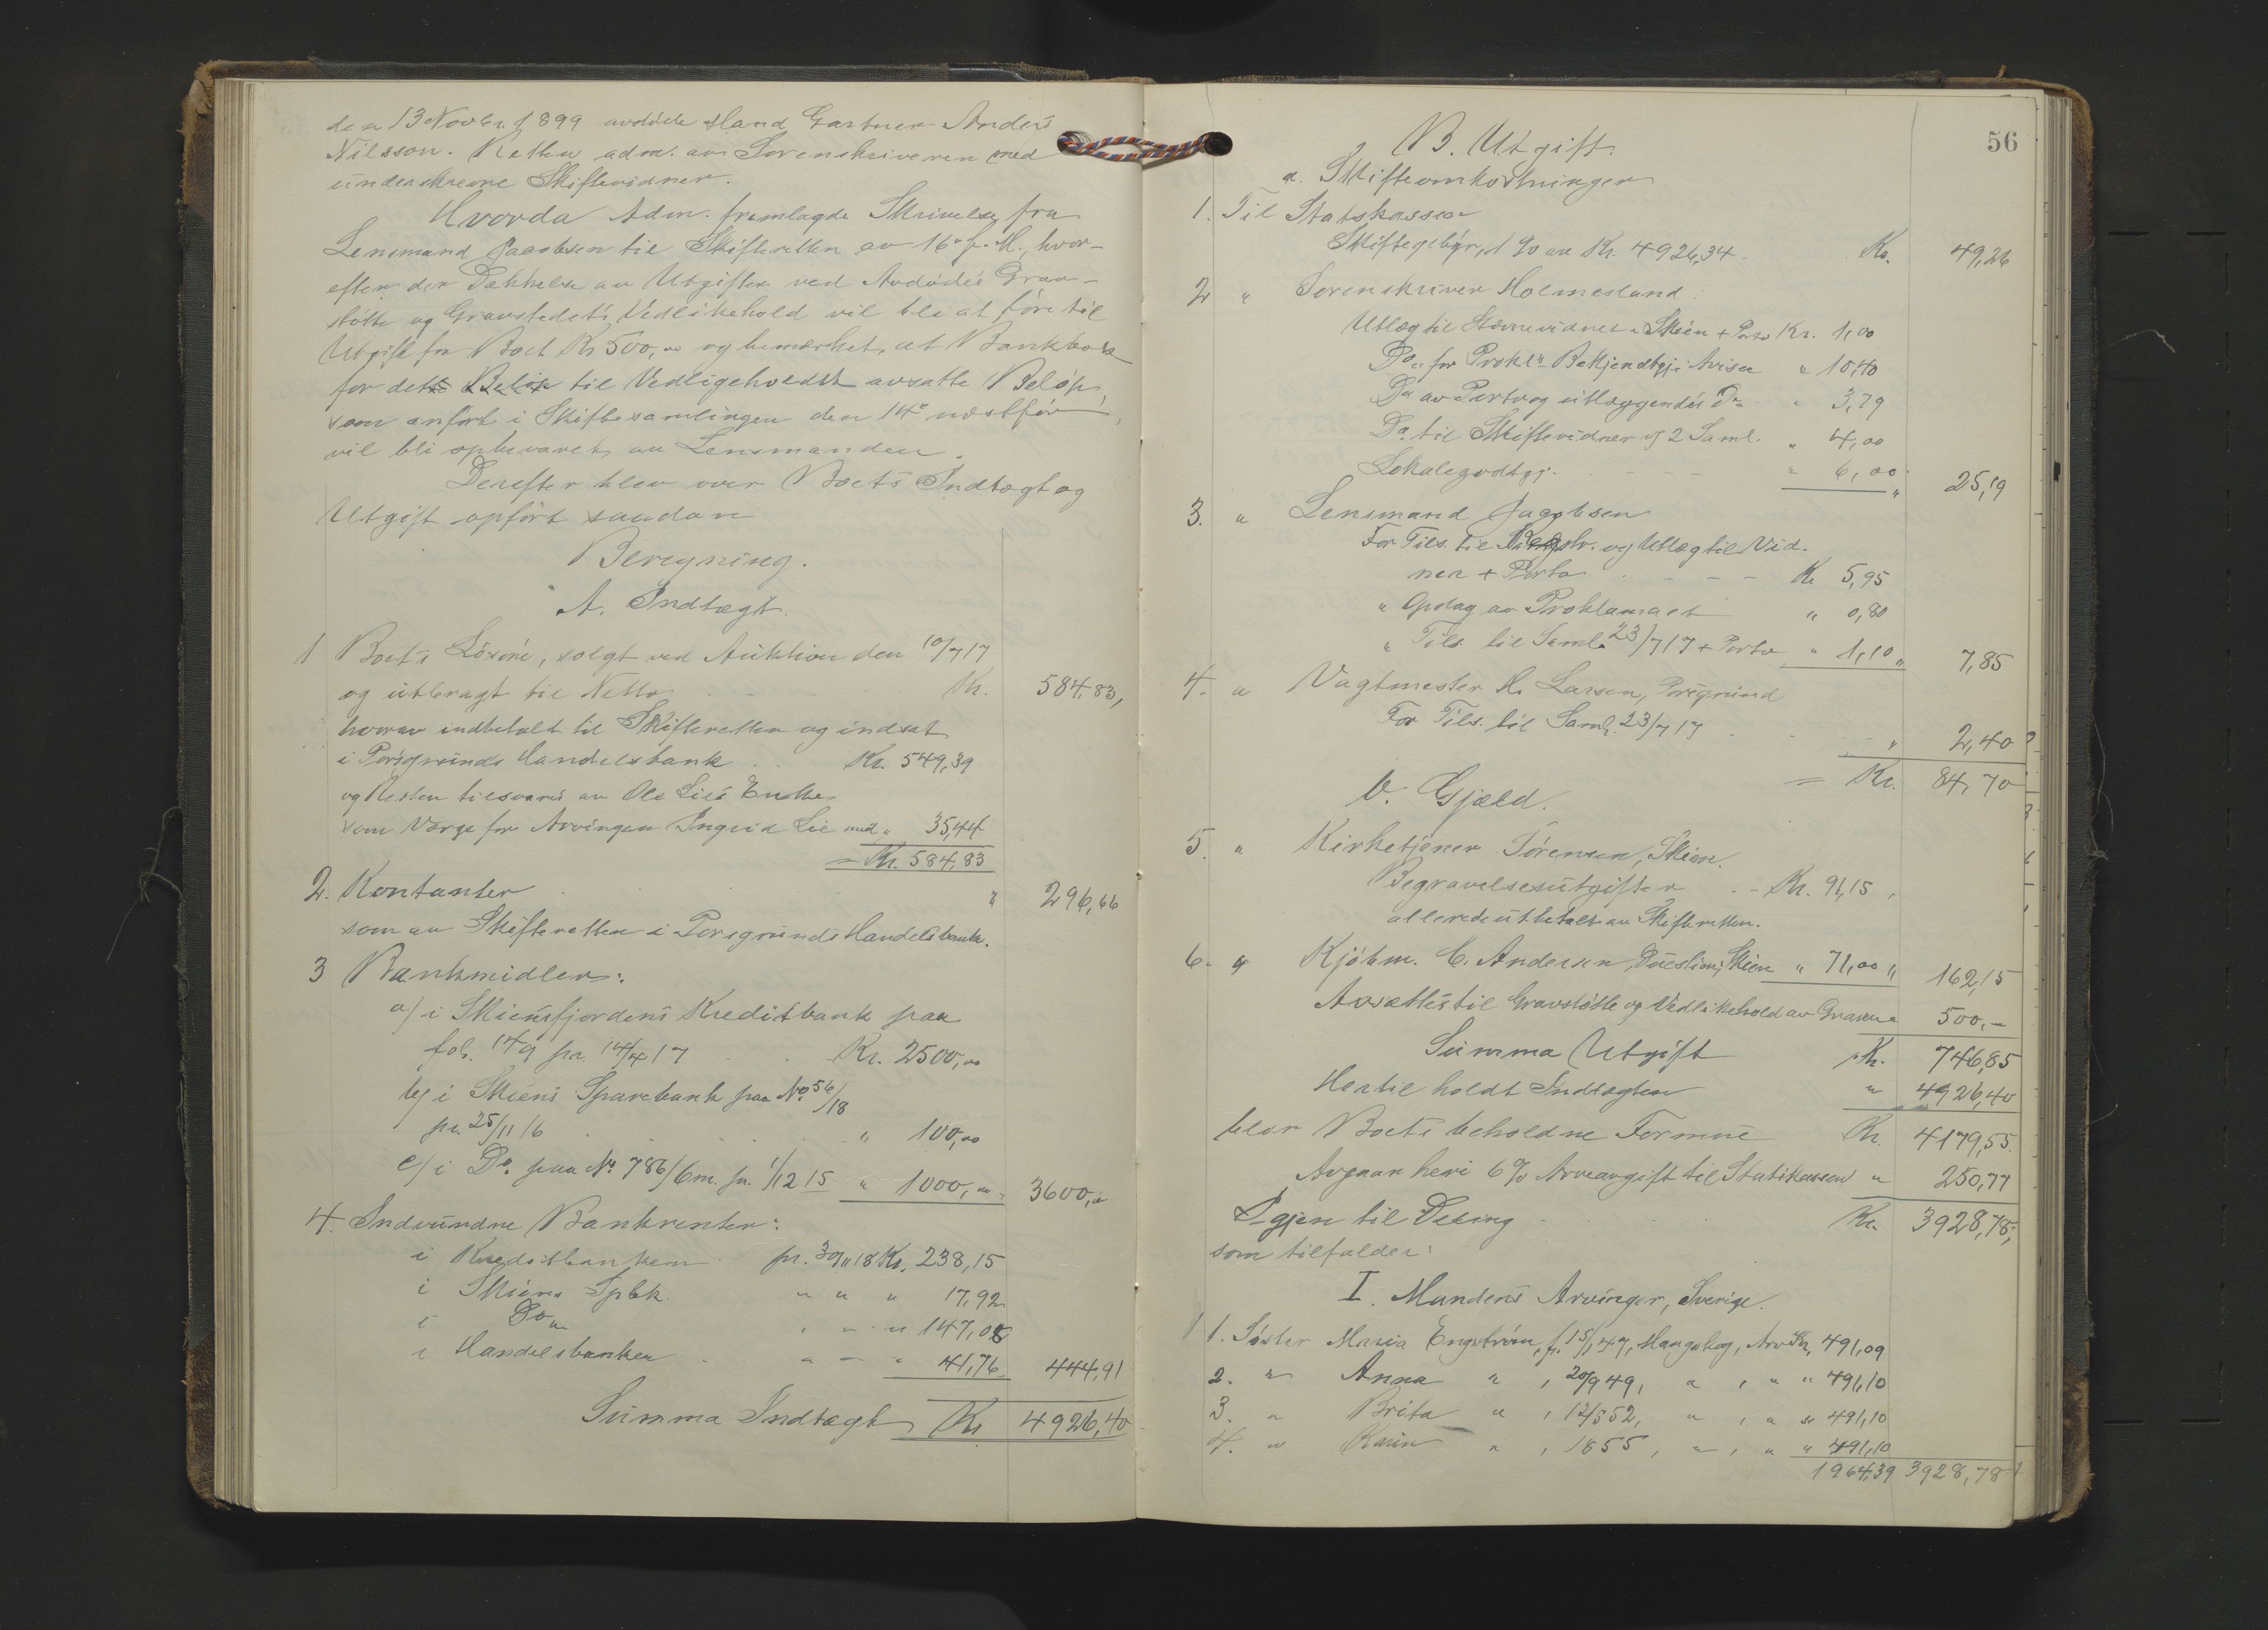 den 13 Novbr. 1899 avdöde Mand Gartner Anders
Nilsson. Retten adm. av Sorenskriveren med
underskrevne Skiftevidner.
Hvorda Adm. fremlagde Skrivelse fra
Lensmand Jacobsen til Skifteretten av 16. f. M., hvor-
efter der Dækkelse av Utgifter ved Avdödes Grav-
stötte og Gravstedets Vedlikehold vil bli at före til
Utgift for Boet Kr 500,00 og bemærket, at Bankbok
for dette Belöp til Vedligeholdet avsatte Belöp,
som anfört i Skiftesamlingen den 14. næstför,
vil bli opbevaret av Lensmanden.
Derefter blev over Boets Indtægt og
Utgift opfört saadan
Beregning.
A. Indtægt.
1 Boets Lösöre, solgt ved Auktion den 10/7 17
og utbragt til Netto Kr. 584,83,
hvorav indbetalt til Skifteretten og indsat
i Porsgrunds Handelsbank Kr. 549,39
og Resten tilsvares av Ole Lies Enke
som Værge for Arvingen Ingrid Lie med " 35,44
= Kr. 584,83
2. Kontanter " 296,66
som av Skifteretten i Porsgrunds Handelsbank.
3 Bankmidler:
a/ i Skiensfjordens Kreditbank paa
fol. 149 pr. 14/4 17 Kr. 2500,00
b/ i Skiens Sparebank paa No. 56/18
pr. 25/11 16 " 100,00
c/ i Do. paa No. 786/6m. pr. 1/12 15 " 1000,00 " 3600,00
4. Indvundne Bankrenter:
i Kreditbanken pr. 30/11 18 Kr. 238,15
i Skiens Spbk. " " " 17,92
i Do " " " 147,08
i Handelsbanken " " " 41,76 444,91
Summa Indtægt Kr 4926,40
56
B. Utgift.
a. Skifteomkostninger
1. Til Statskassen
Skiftegebyr, 1 % av Kr. 4926,34 Kr. 49,26
2 " Sorenskriver Holmesland
Utlæg til Stævnevidnet i Skien + Porto Kr. 1,00
Do. for Prokl. Bekjendtgj. i Aviser " 10,40
Do av Porto og utlæggendes Do " 3,79
Do. til Skiftevidner i 2 Saml. " 4,00
Lokalegodtgj. " 6,00 " 25,19
3. " Lensmand Jacobsen
For Tils. til Registr. og Utlæg til Vid-
ner + Porto Kr 5,95
" Opslag av Proklamaet " 0,80
" Tils. til Saml. 23/7 17 + Porto " 1,10 " 7,85
4. " Vagtmester H. Larsen, Porsgrund
For Tils. til Saml. 23/7 17 " 2,40
= Kr. 84,70
b. Gjæld.
5. " Kirketjener Sörensen, Skien.
Begravelsesutgifter Kr. 91,15,
allerede utbetalt av Skifteretten.
6. " Kjöbm. C. Andersen, Skien " 71,00 " 162,15
Avsættes til Gravstötte og Vedlikehold av Graven " 500,-
Summa Utgift Kr. 746,85
Hertil holdt Indtægten " 4926,40
blir Boets beholdne Formue Kr. 4179,55
Avgaar heri 6 % Arveavgift til Statskassen " 250,77
Igjen til Deling Kr. 3928,78,
som tilfalder:
I. Mandens Arvinger, Sverige.
1. Söster Maria Engström, f. 15/1 47, Mangskog, Arv Kr. 491,09
2. " Anna " , 20/9 49, " , " " 491,10
3. " Brita " , 12/5 52, " , " " 491,10
4. " Karin " , 1855, " , " " 491,10
1964,39 3928,78